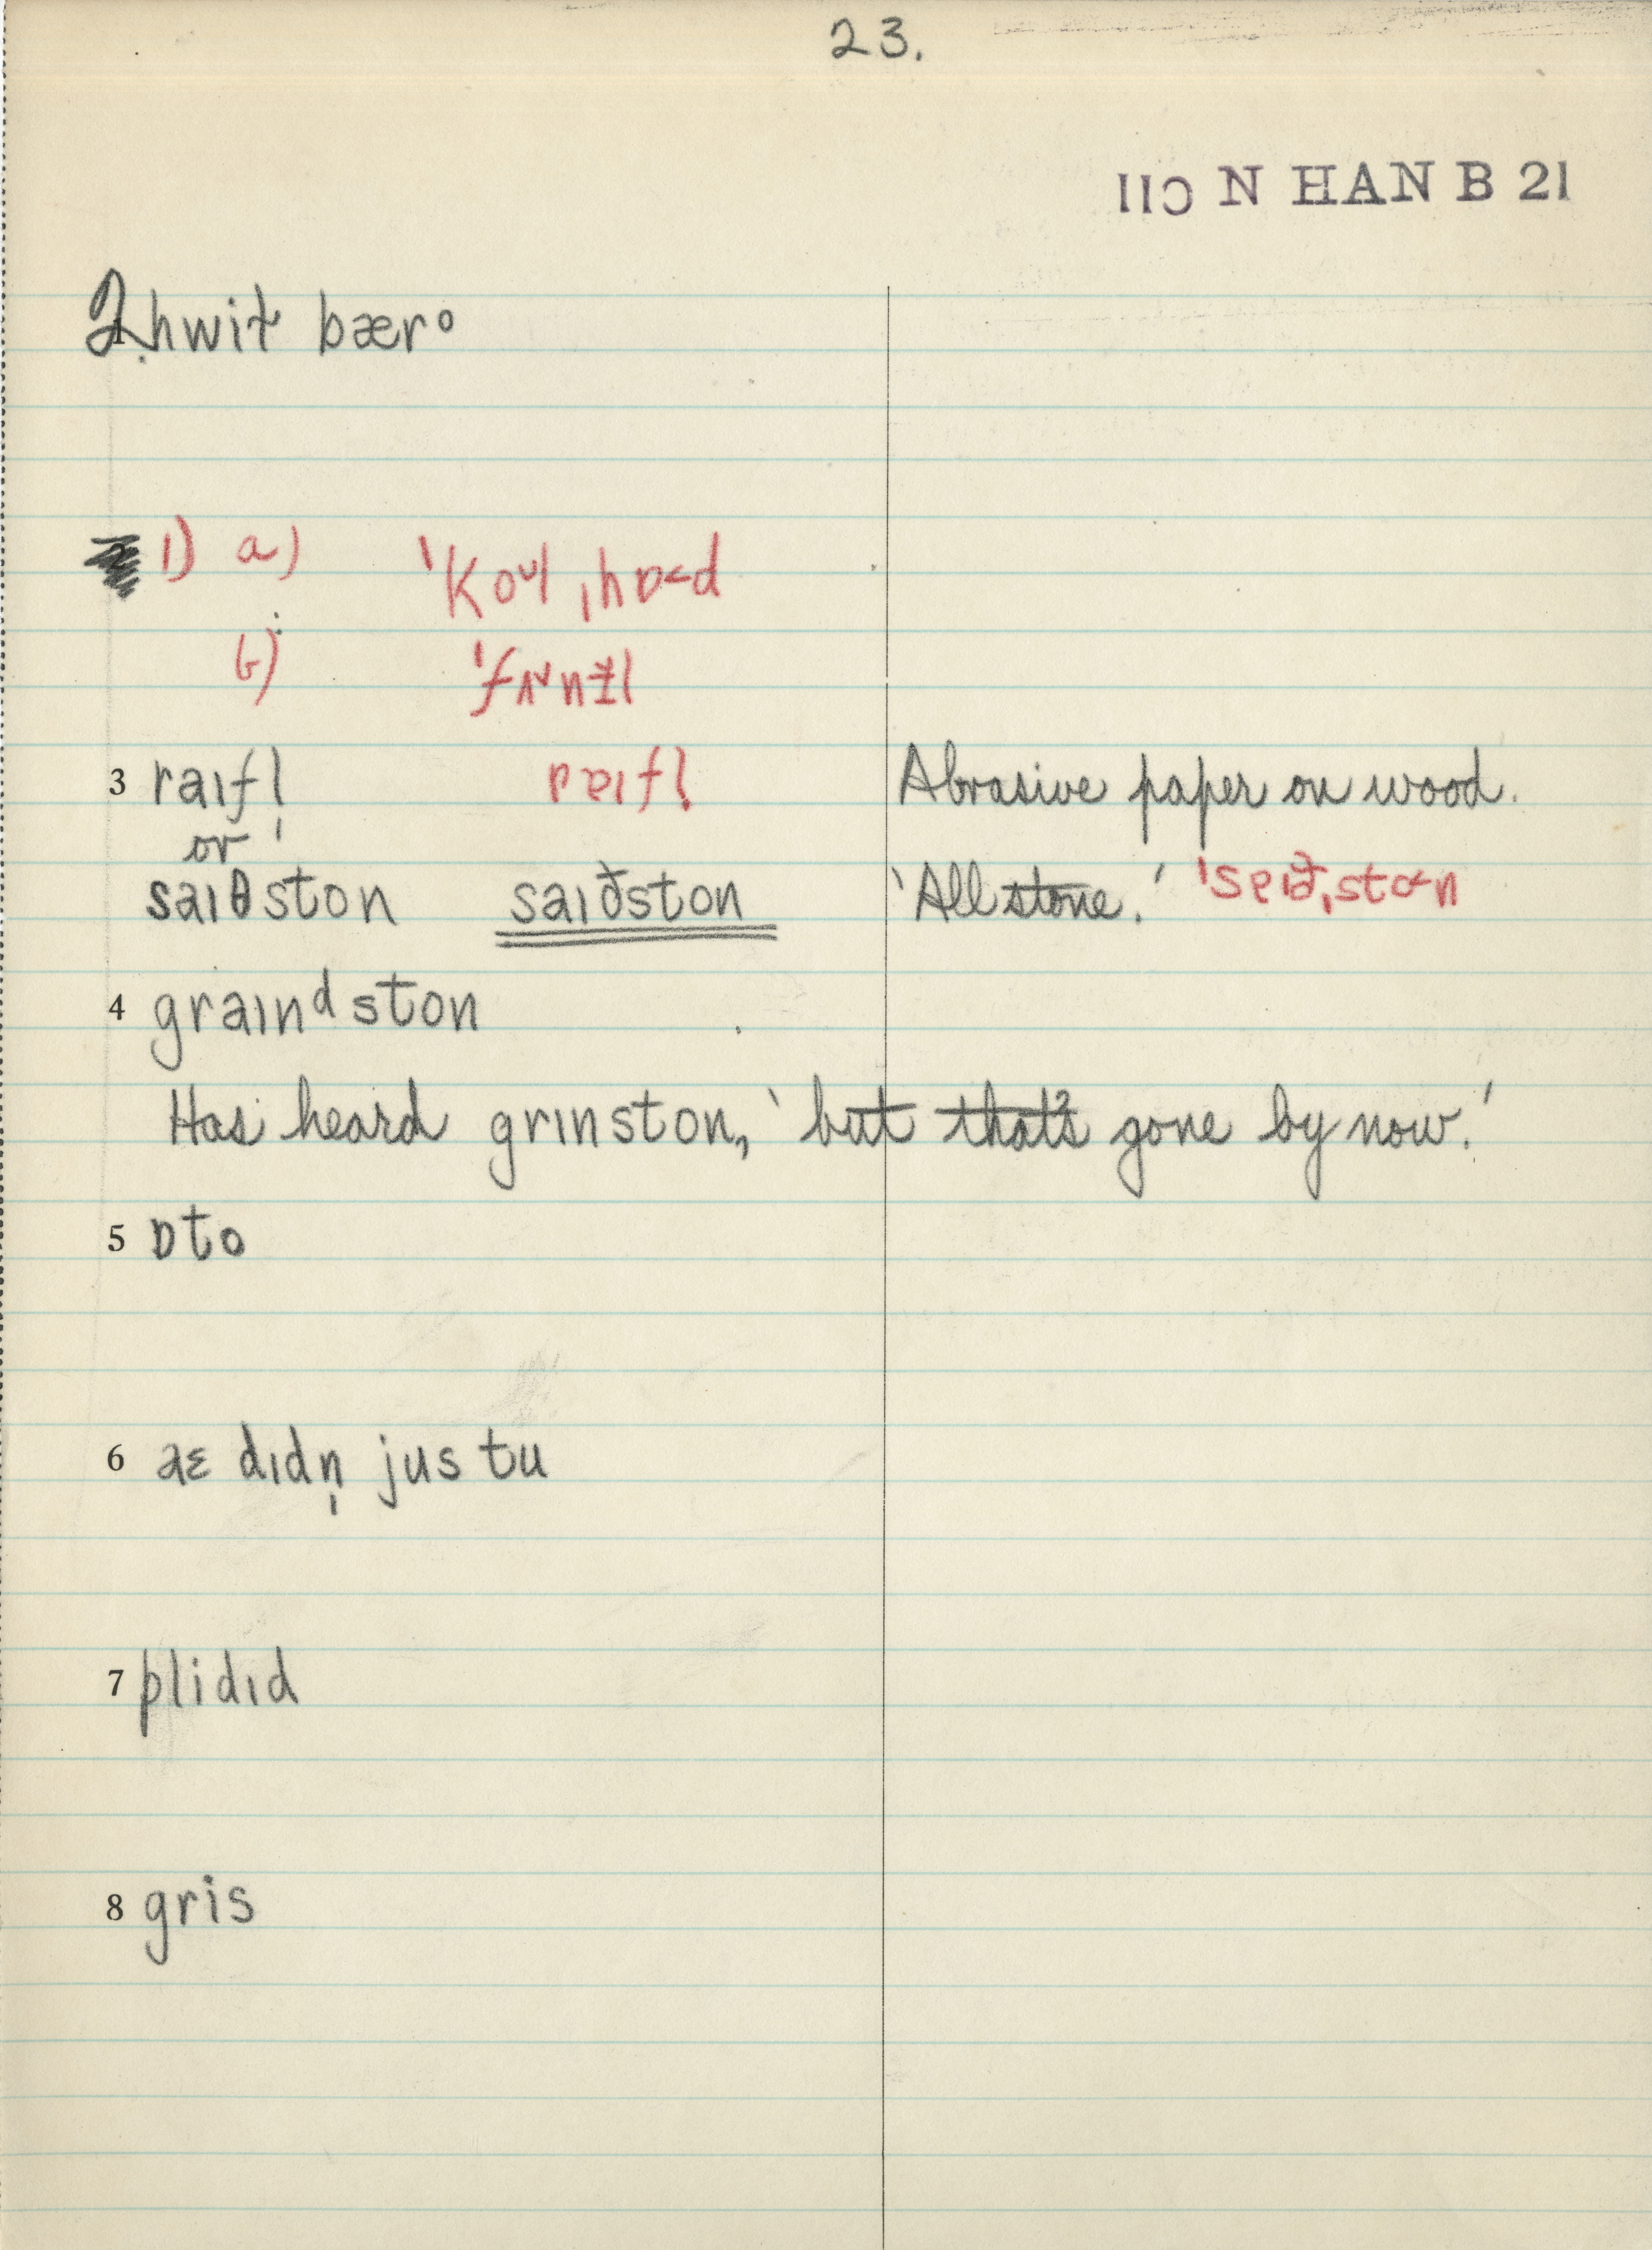 23.
IIC N HAN B 21
2 hwit bæro
1) a) ˈkoᴜl ˌhɒ<d
b) ˈfʌnɫl
3 raɪfl̩ rɐɪfl̩ Abrasive paper on wood.
or
saɪθston saɪðston ‘All stone.’ ˈsɐɪðˌston
4 graɪnᵈston
Has heard grɪnston, ‘but that's gone by now.’
5 ɒto
6 aɛ dɪdn̩ jus tu
7 plidɪd
8 gris